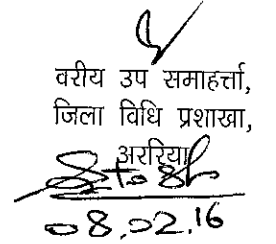 वरीय उप समाहर्त्ता,
जिला विधि प्रशाखा,
अररिया
08.02.16